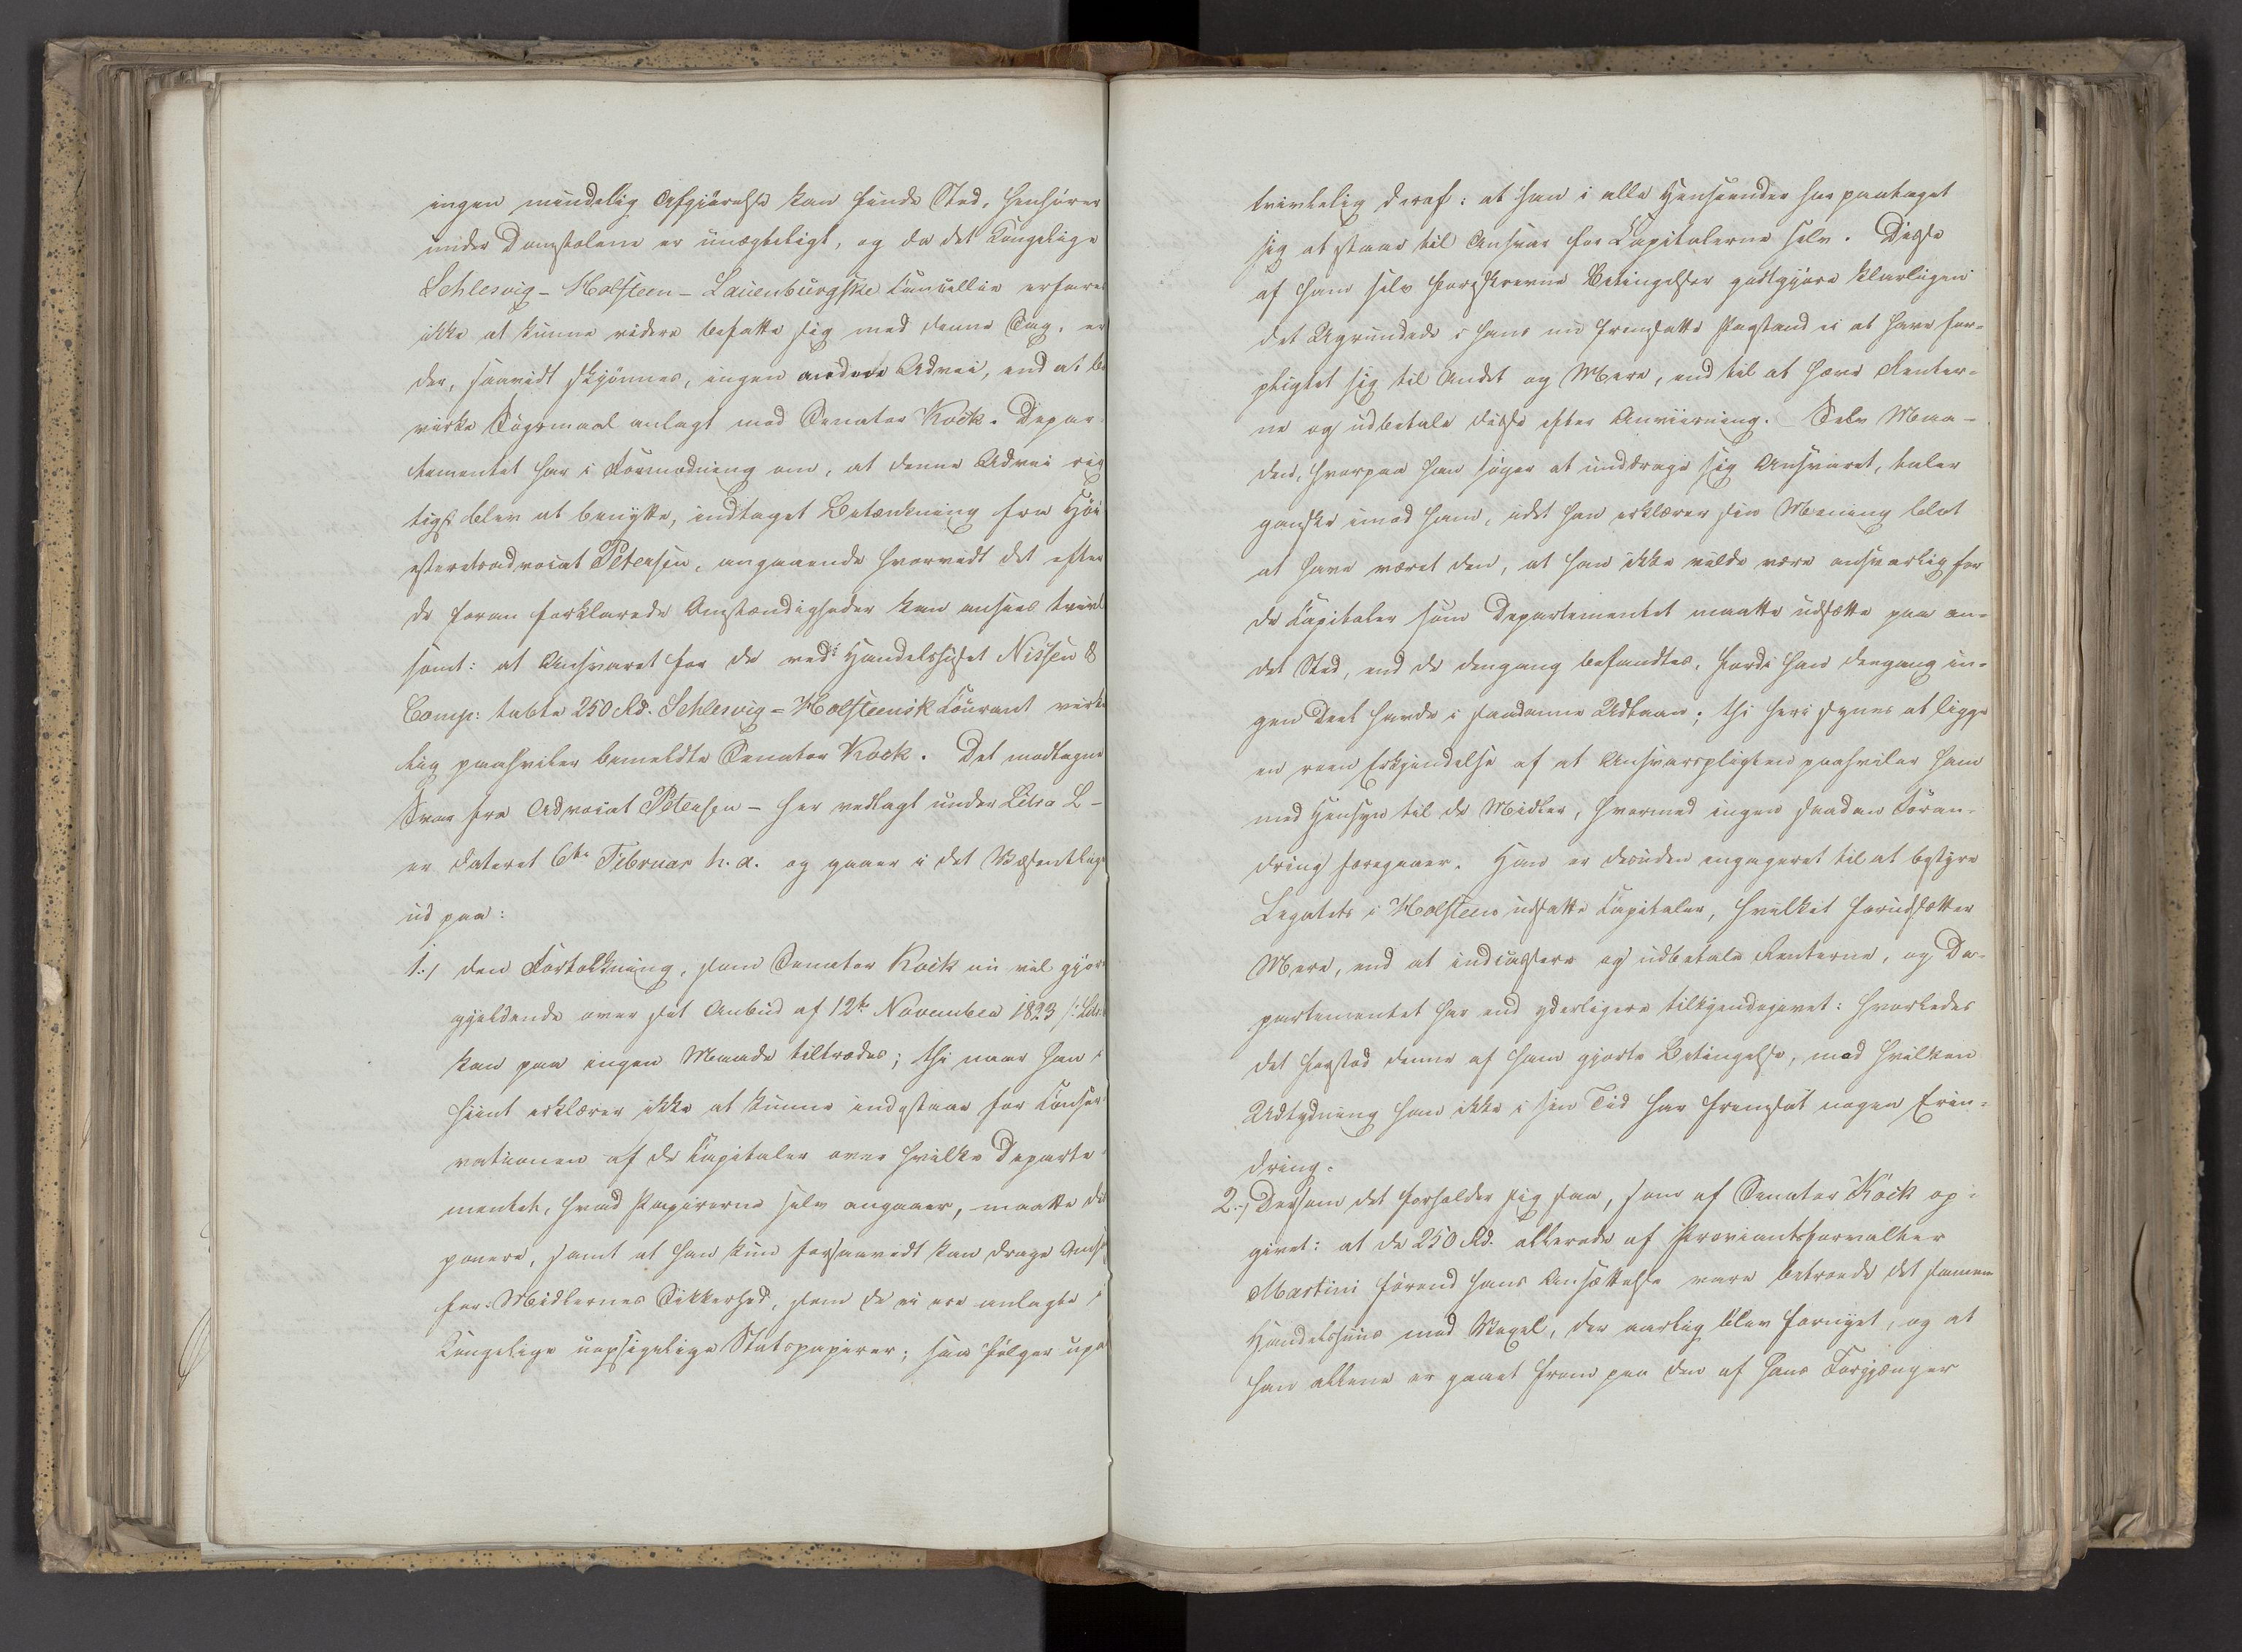 ingen mindelig Afgjörelse kan finde Sted, henhörer
under Domstolene er unægteligt, og da det Kongelige
Schlesvig-Holsteen-Lauenburgske Cancellie erfares
ikke at kunne videre befatte sig med denne Sag, er
der, saavidt skjönnes, ingen anden Udvei, end at be
virke Sögsmaal anlagt mod Senator Kock. Depar
tementet har i Formodning om, at denne Udvei rig
tigst blev at benytte, indtaget Betænkning fra Höi
esteretsadvocat Petersen, angaaende hvorvidt det efter
de foran forklarede Omstændigheder kan ansees tvivl
somt: at Ansvaret for de ved Handelshuset Nissen &
Comp: tabte 250 Rd. Schlesvig-Holsteensk Courant virke
lig paahviler bemeldte Senator Kock. Det modtagne
Svar fra Advocat Petersen - her vedlagt under Litra L -
er dateret 6te Februar h. a. og gaaer i det Væsentlige
ud paa:
1.) den Fortolkning, som Senator Kock nu vil gjöre
gjeldende over sit Anbud af 12te November 1823 /: Litr:
kan paa ingen Maade tiltrædes; thi naar han i
hiint erklærer ikke at kunne indestaae for Conser
vationen af de Capitaler over hvilke Departe
mentet, hvad Papirerne selv angaaer, maatte dis
ponere, samt at han kun forsaavidt kan drage Ans
for Midlernes Sikkerhed, som de ei ere anlagte i
Kongelige uopsigelige Statspapirer; saa fölger up
tvivlelig deraf: at han i alle Henseender har paataget
sig at staae til Ansvar for Capitalerne selv. Disse
af ham selv foreskrevne Betingelser godtgjöre klarligen
det Ugrundede i hans nu fremsatte Paastand ei at have for-
pligtet sig til Andet og Mere, end til at hæve Renter-
ne og udbetale disse efter Anviisning. Selv Maa-
den, hvorpaa han söger at unddrage sig Ansvaret, taler
ganske imod ham, idet han erklærer sin Mening blot
at have været den, at han ikke vilde være ansvarlig for
de Capitaler som Departementet maatte udsætte paa an-
det Sted, end de dengang befandtes, fordi han dengang in-
gen Deel havde i saadanne Udlaan; thi heri synes at ligge
en reen Erkjendelse af at Ansvarspligten paahviler ham
med Hensyn til de Midler, hvormed ingen saadan Foran-
dring foregaaer. Han er desuden engageret til at bestyre
Legatets i Holsteen udsatte Capitaler, hvilket forudsætter
Mere, end at indcassere og udbetale Renterne, og De-
partementet har end yderligere tilkjendegivet: hvorledes
det forstod denne af ham gjorte Betingelse, mod hvilken
Udtydning han ikke i sin Tid har fremsat nogen Erin-
dring.
2.) Dersom det forholder sig saa, som af Senator Kock op-
givet: at de 250 Rd. allerede af Proviantsforvalter
Martini förend hans Ansættelse vare betroede det samme
Handelshuus mod Vexel, der aarlig blev fornyet, og at
han allene er gaaet frem paa den af hans Forgjænger